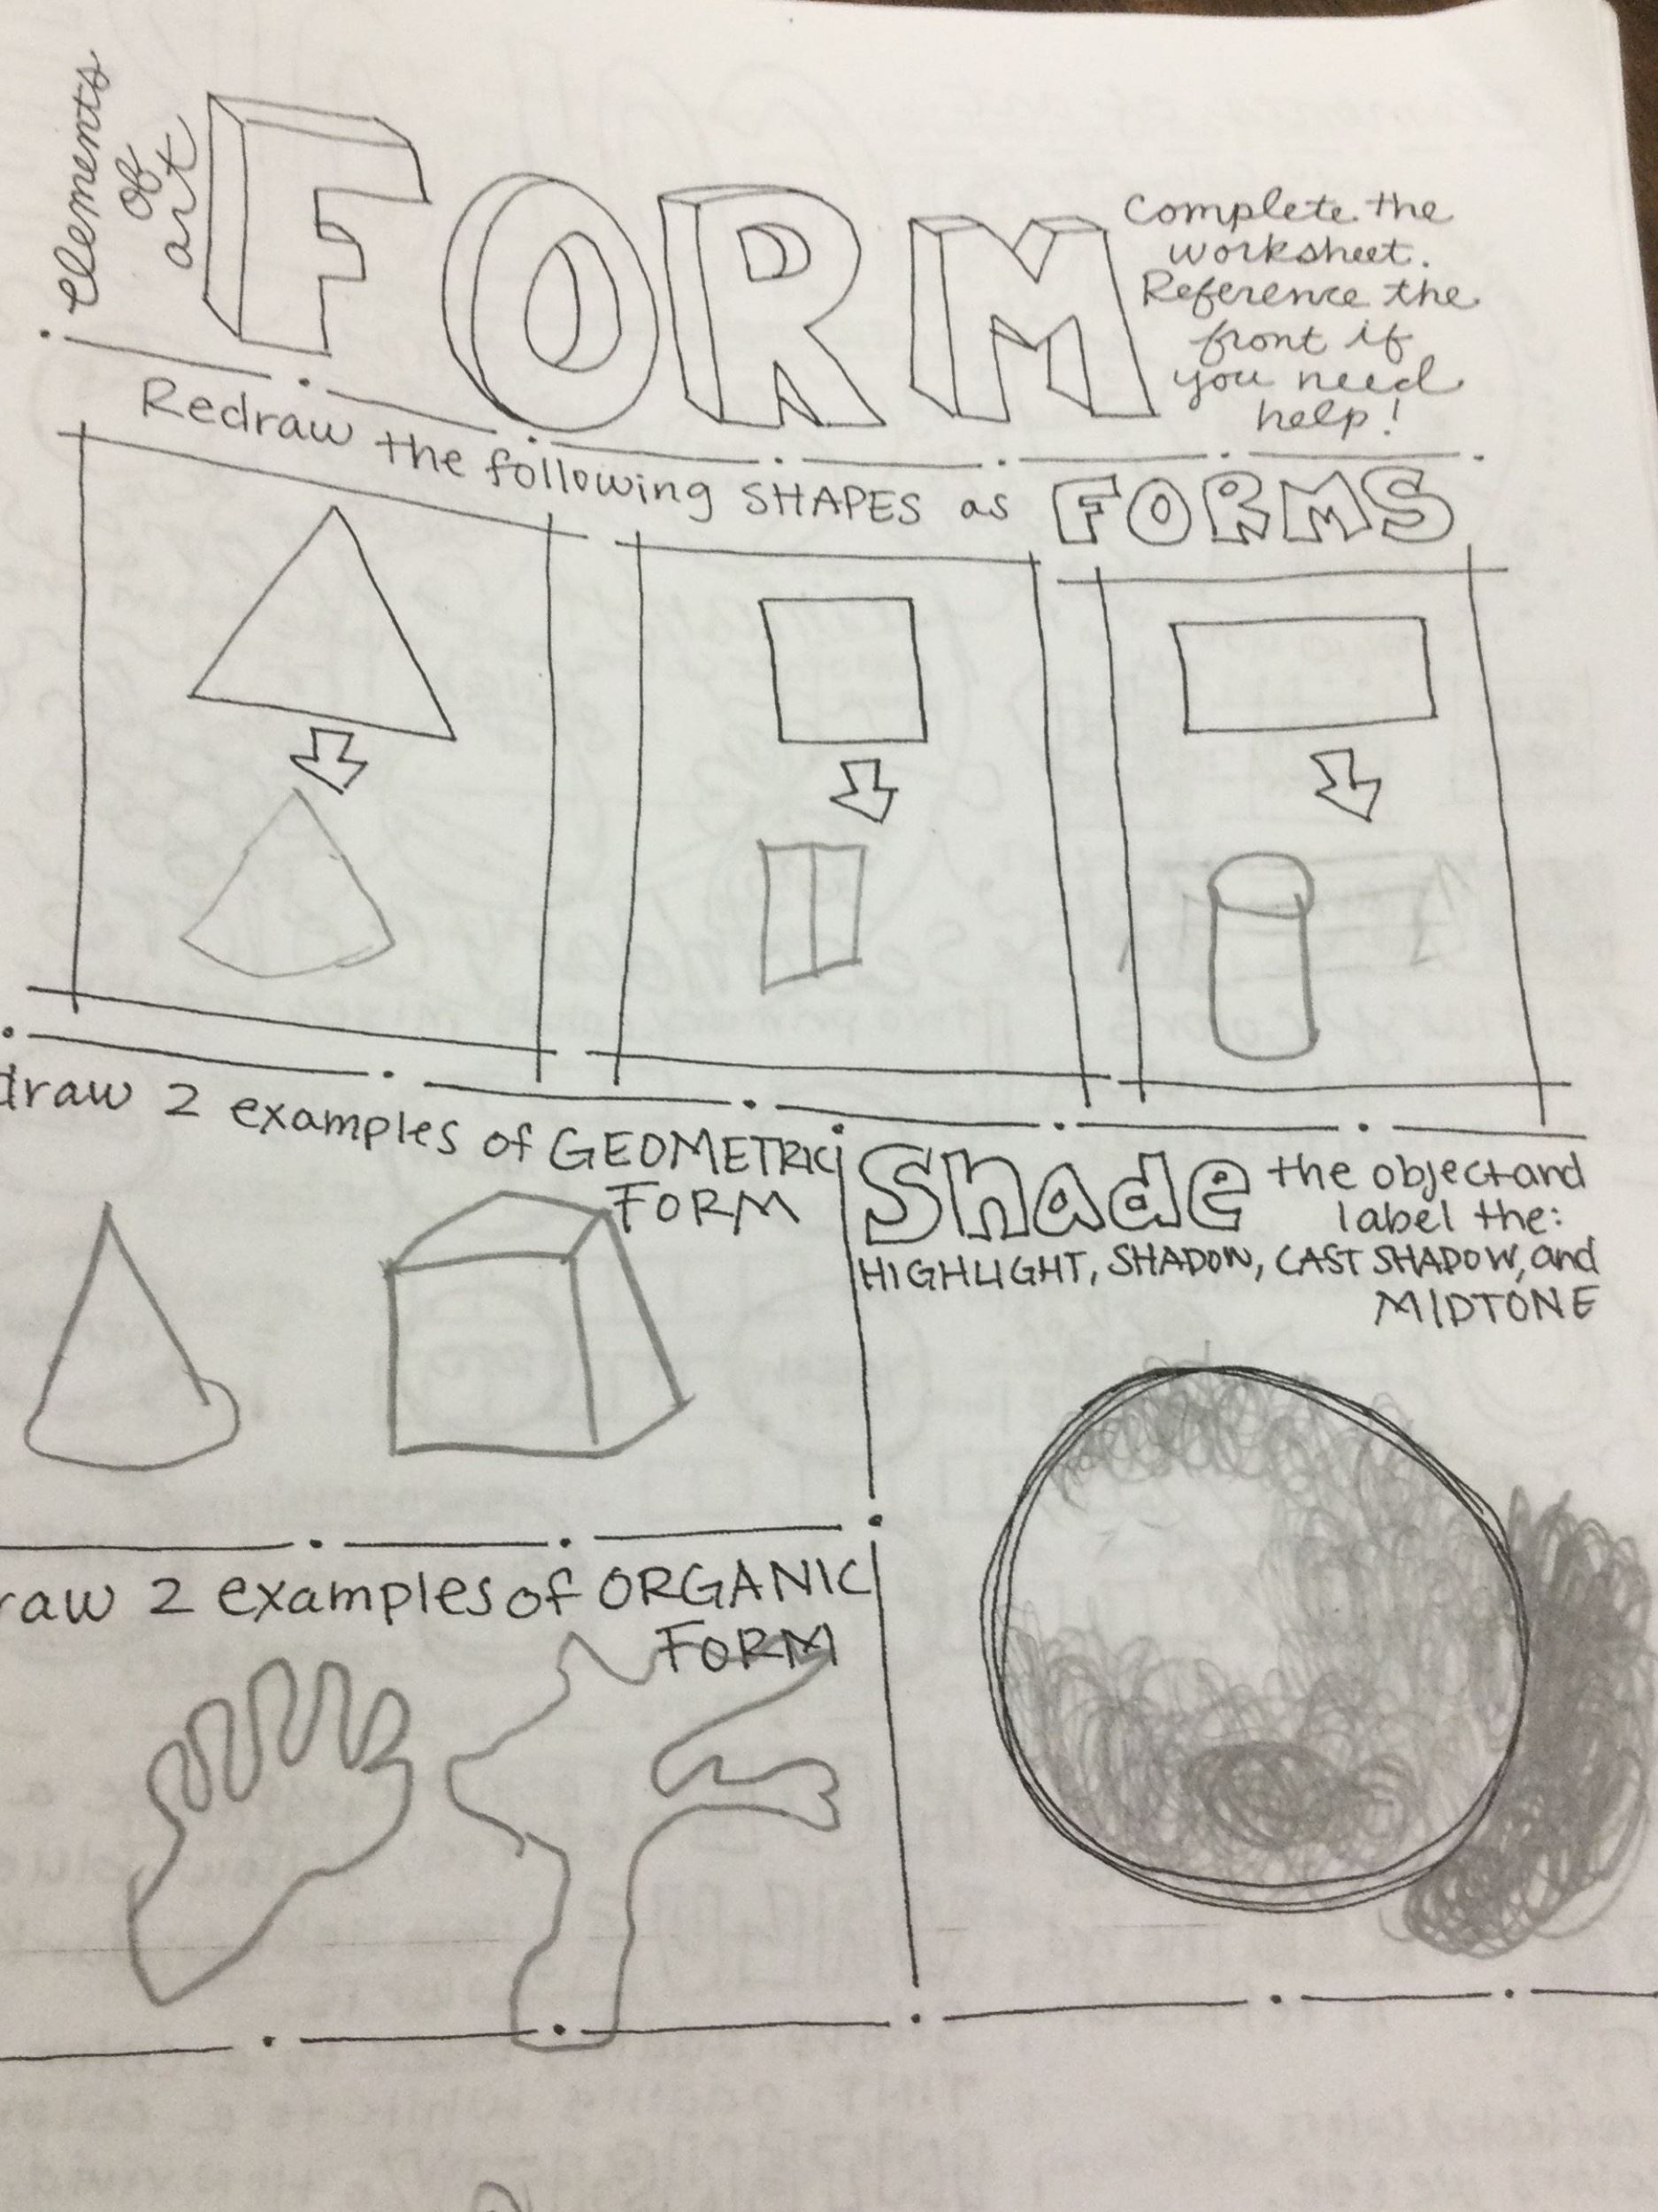 Elements
of
art
FORM
Complete the
worksheet.
Reference the
front if
you need
help!
Redraw the following SHAPES as FORMS
draw 2 examples of GEOMETRIC
FORM
Shade the object and
label the:
HIGHLIGHT, SHADOW, CAST SHADOW, and
MIDTONE
raw 2 examples of ORGANIC
FORM